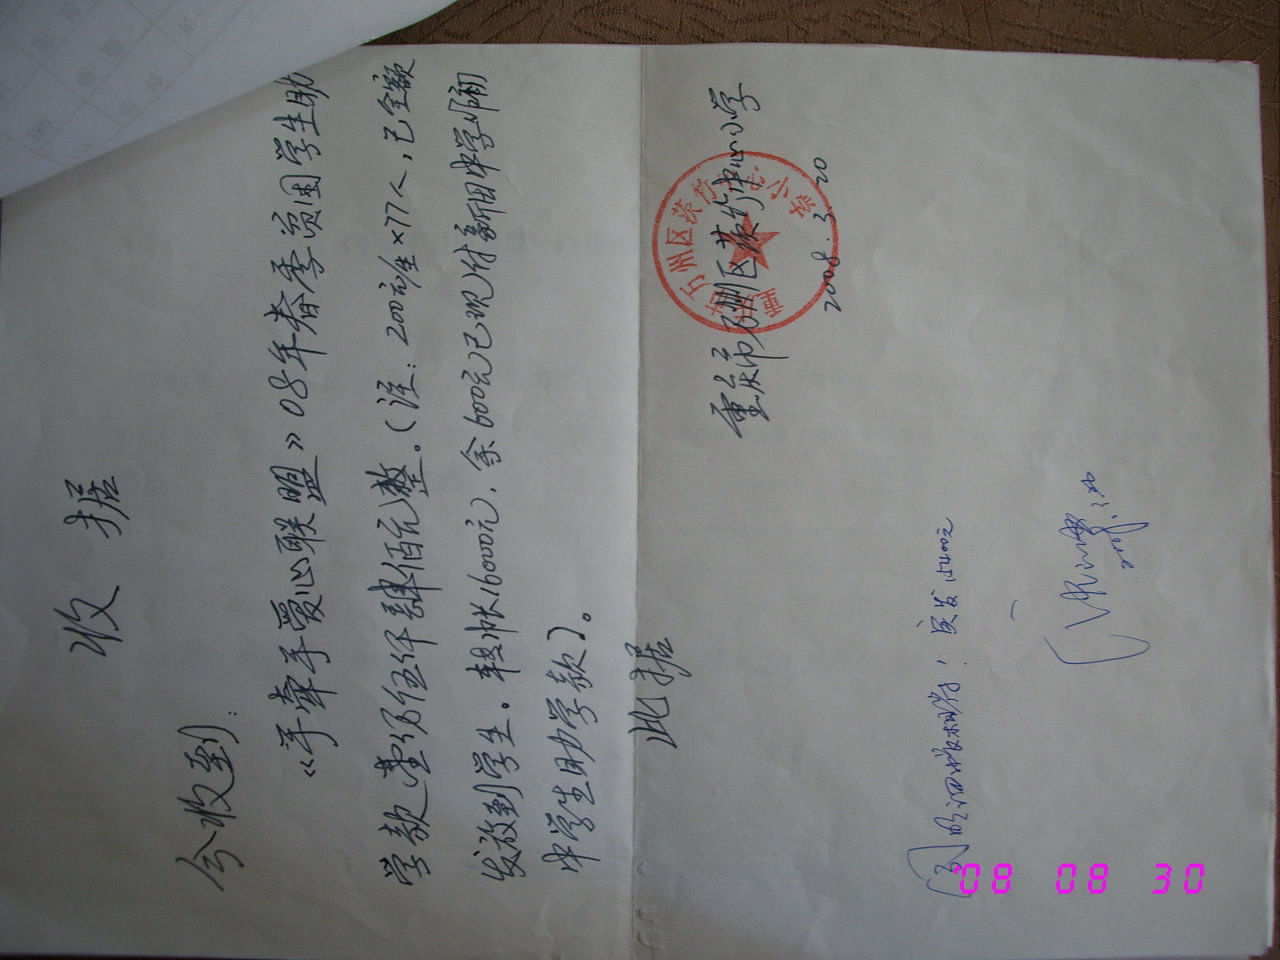 收 据
今收到:
《手牵手爱心联盟》08年春季贫困学生助
学款壹万伍仟肆佰元整。(注: 200元/生×77人,已全额
发放到学生。转帐16000元,余600元已现付新田中学
中学生助学款)。
此据
重庆市万州区茨竹中心小学
2008.3.20
重庆市万州区茨竹中心小学
实发15400元
08 08 30